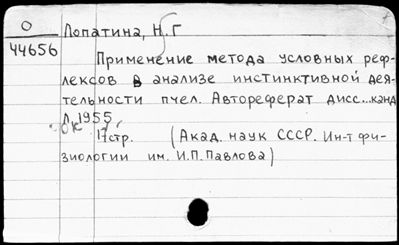 О
44656
Лопатина, Н.Г
Применение метода условных реф-
лексов в анализе инстинктивной дея-
тельности пчел. Автореферат дисс...канд
Л, 1955
ОК 17стр. (Акад. наук СССР. Ин-т фи-
зиологии им. И.П.Павлова)